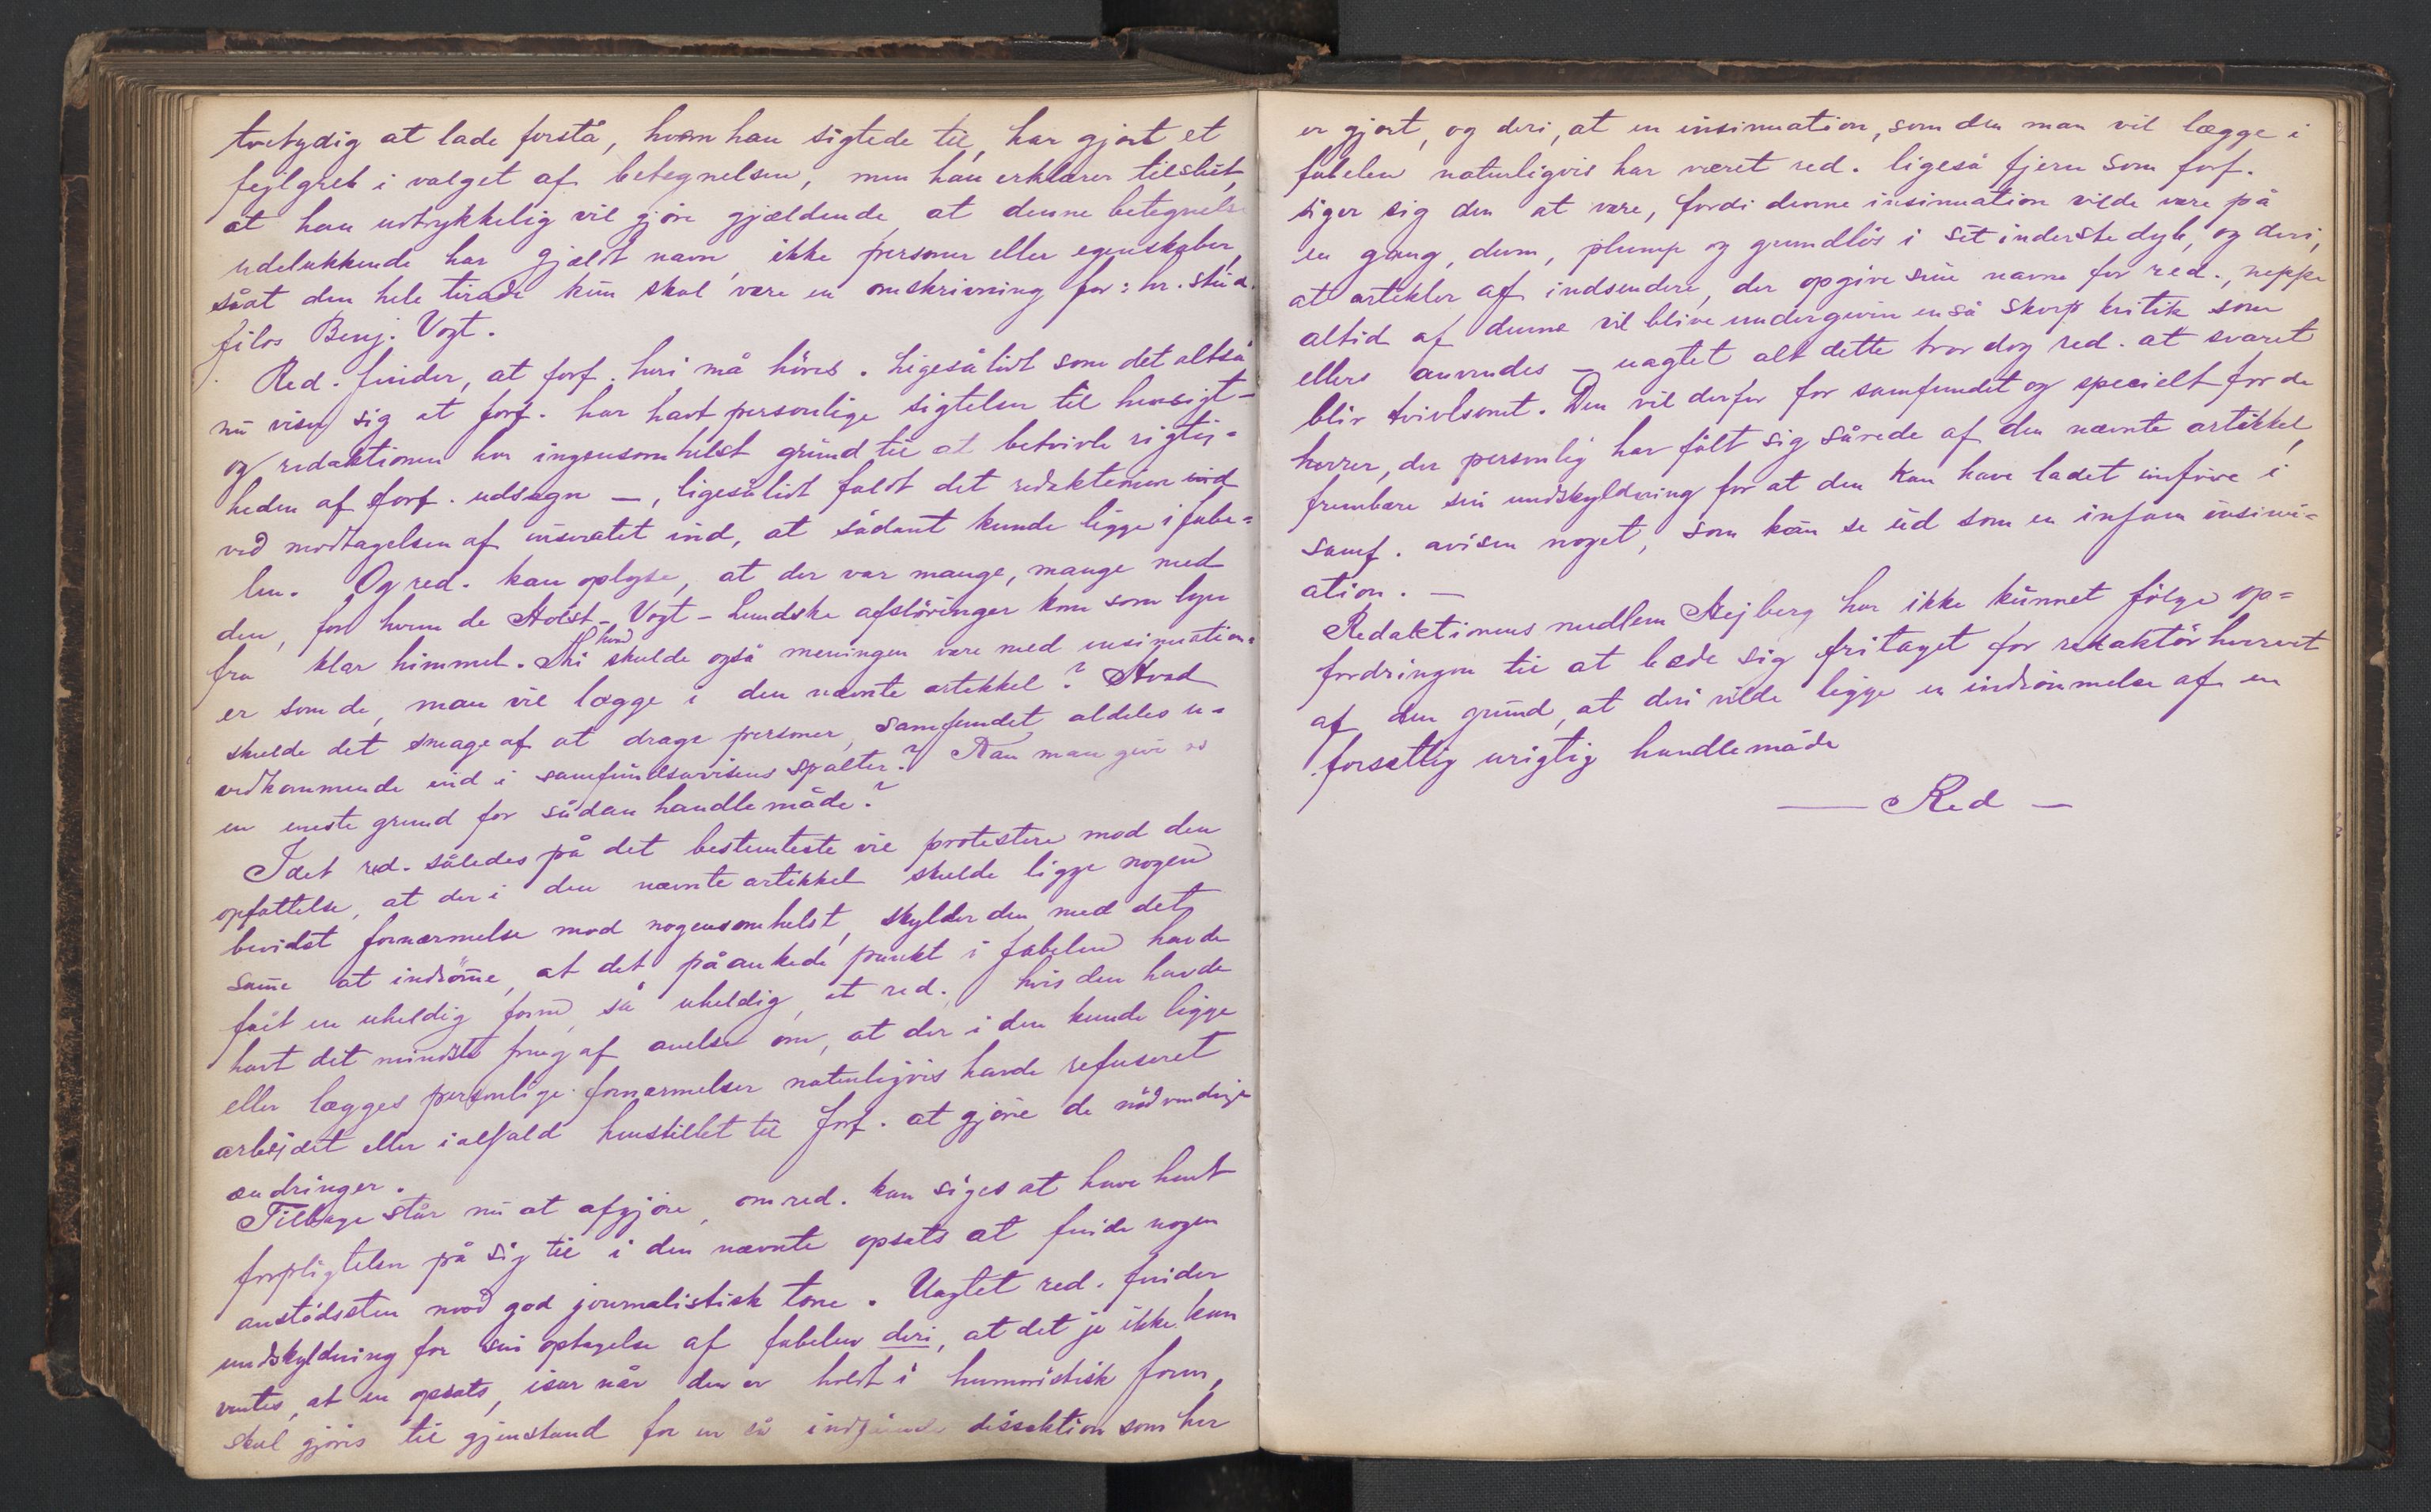 tvetydig at lade forstå, hvem han sigtede til, har gjort et
fejlgreb i valget af betegnelsen, men han erklærer tilslut,
at han udtrykkelig vil gjøre gjældende at denne betegnelse
udelukkende har gjældt navn, ikke personer eller egenskaber,
såat den hele tirade kun skal være en omskrivning for: hr. stud.
filos Benj. Vogt.
Red. finder, at forf. heri må höres. Ligesålidt som det altså
nu viser sig at forf. har havt personlige sigtelser til hensigt –
og redaktionen har ingensomhelst grund til at betvivle rigtig=
heden af forf. udsagn –, ligesålidt faldt det redaktionen ind
ved modtagelsen af inseratet ind, at sådant kunde ligge i fabe=
len. Og red. kan oplyse, at der var mange, mange med
den, for hvem de Holst-Vogt-Lundske afslöringer kom som lyn
fra klar himmel. Thi hvad skulde også meningen være med insinuation=
er som de, man vil lægge i den nævnte artikkel? Hvad
skulde det smage af at drage personer, samfundet aldeles u=
vedkommende ind i samfundsavisens spalter? Kan man give os
en eneste grund for sådan handlemåde?
Idet red. således på det bestemteste vil protestere mod den
opfattelse, at der i den nævnte artikkel skulde ligge nogen
bevidst fornærmelse mod nogensomhelst, skylder den med det
samme at indrömme, at det påankede punkt i fabelen havde
fåt en uheldig form, så uheldig, at red., hvis den havde
havt det mindste fnug af anelse om, at der i den kunde ligge
eller lægges personlige fornærmelser naturligvis havde refuseret
arbejdet eller ialfald henstillet til forf. at gjöre de nödvendige
ændringer.
Tilbage står nu at afgjöre, om red. kan siges at have havt
forpligtelsen på sig til i den nævnte opsats at finde nogen
anstödssten mod god journalistisk tone. Uagtet red. finder
undskyldning for sin optagelse af fabelen deri, at det jo ikke kan
ventes, at en opsats, især når den er holdt i humoristisk form,
skal gjöres til gjenstand for en så indgående dissektion som her
er gjort, og deri, at en insinuation, som den man vil lægge i
fabelen naturligvis har været red. ligeså fjern som forf.
siger sig den at være, fordi denne insinuation vilde være på
en gang, dum, plump og grundlös i sit inderste dyb, og deri,
at artikler af indsendere, der opgive sine navne for red., neppe
altid af denne vil blive undergiven en så skarp kritik som
ellers anvendes – uagtet alt dette tror dog red. at svaret
blir tvivlsomt. Den vil derfor for samfundet og specielt for de
herrer, der personlig har fölt sig sårede af den nævnte artikkel,
frembære sin undskyldning for at den kan have ladet indföre i
samf. avisen noget, som kan se ud som en infam insinu=
ation. –
Redaktionens medlem Hejberg har ikke kunnet fölge op=
fordringen til at bede sig fritaget for redaktörhvervet
af den grund, at deri vilde ligge en indrömmelse af en
forsætlig urigtig handlemåde
— Red —